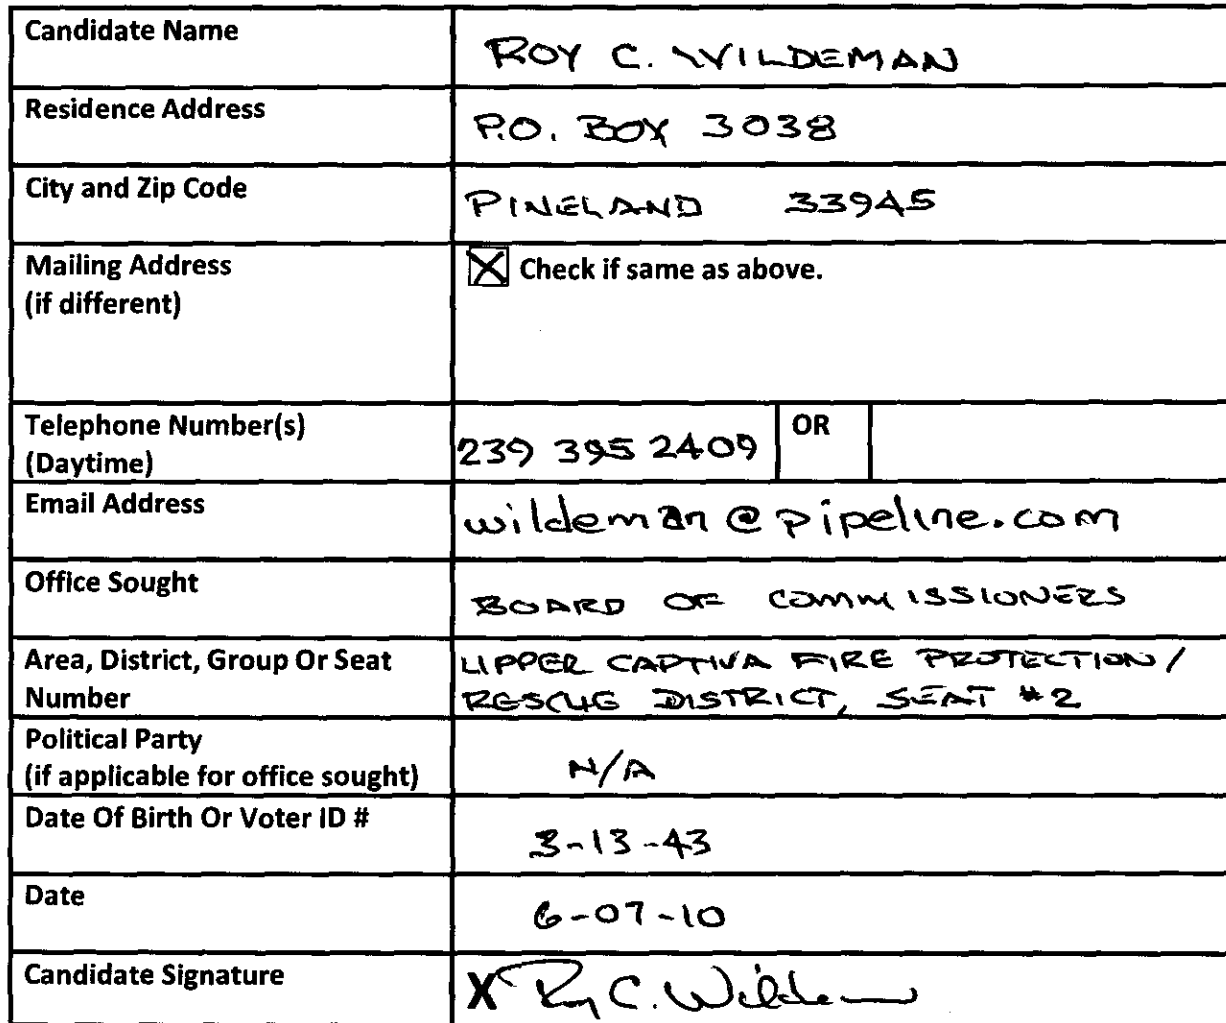 Candidate Name
ROY C. WILDEMAN
Residence Address
P.O. BOX 3038
City and Zip Code
PINELAND 33945
Mailing Address
(if different)
☒ Check if same as above.
Telephone Number(s)
(Daytime)
239 395 2409
OR
Email Address
wildeman@pipeline.com
Office Sought
BOARD OF COMMISSIONERS
Area, District, Group Or Seat
Number
UPPER CAPTIVA FIRE PROTECTION/
RESCUE DISTRICT, SEAT #2
Political Party
(if applicable for office sought)
N/A
Date Of Birth Or Voter ID #
3-13-43
Date
6-07-10
Candidate Signature
X Roy C. Wildeman